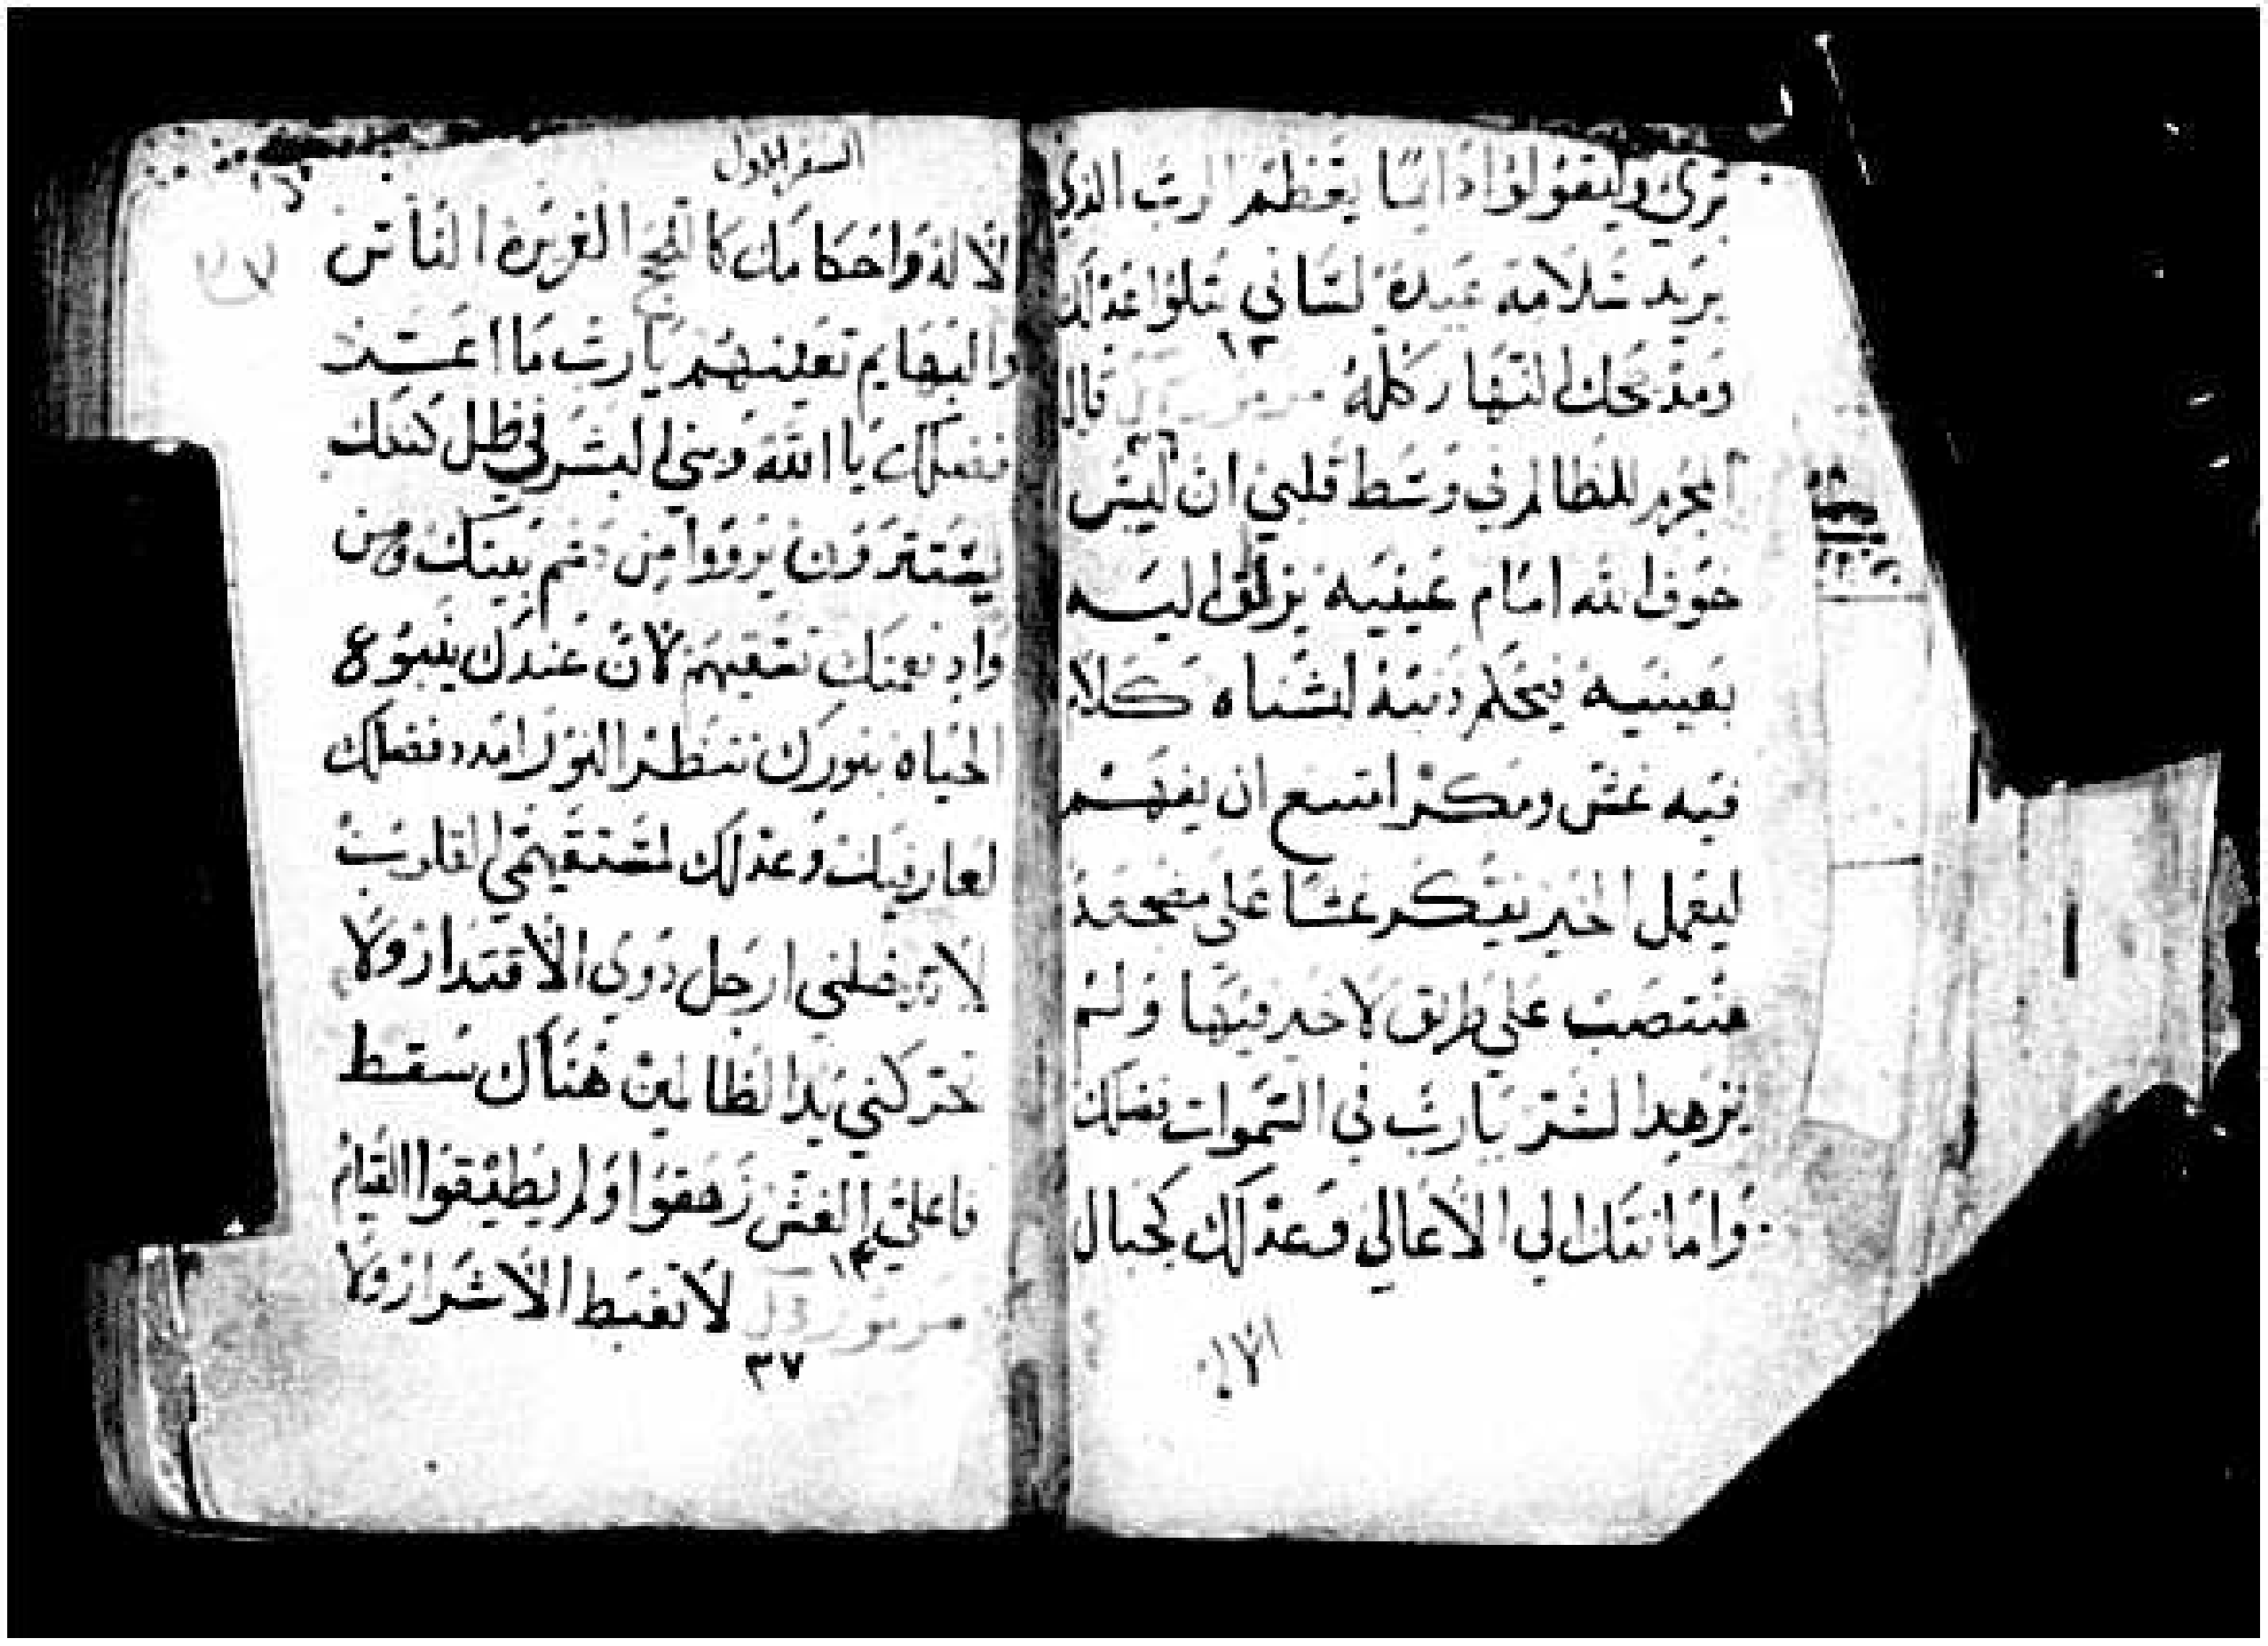 بري وليقولوا دايما يعظم الرب الذي
يريد سلامة عبده لساني يتلوا عدلك
ومدحك النهار كله مزمور قال
١٣
٣٦
المجرم للظالم في وسط قلبي ان ليس
خوف الله امام عينيه يزلق اليه
بعينيه فيحلم ذنبه لشناه كلام
فيه غش ومكر امتنع ان يفهم
ليعمل الخير يفتكر غشا على مضجعه
منتصب علي طريق لا خير فيها ولم
يزهد الشر يا رب في السموات فضلك
وامانتك الي الاعالي وعدلك كجبال
الاله
السفر الاول
الاله واحكامك كاللجج الغزيرة الناس
والبهايم تعينهم يا رب ما اعز
فضلك يا الله وبني البشر في ظل كنفك
يستترون يرووا من دسم بيتك ومن
وادي نعمتك تسقيهم لان عندك ينبوع
الحياه بنورك ننظر النور امدد فضلك
لعارفيك وعدلك لمستقيمي القلوب
لا تدخلني ارجل ذوي الاقتدار ولا
تحركني يد الظالمين هناك سقط
فاعلي الغش زهقوا ولم يطيقوا القيام
١٤
مزمور لا تغبط الاشرار ولا
٣٧